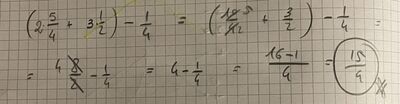 (2 5/4 + 3 1/2) - 1/4 = (10 5/4 2 + 3/2) - 1/4 =
= 4 8/2 - 1/4 = 4 - 1/4 = 16-1/4 = 15/4